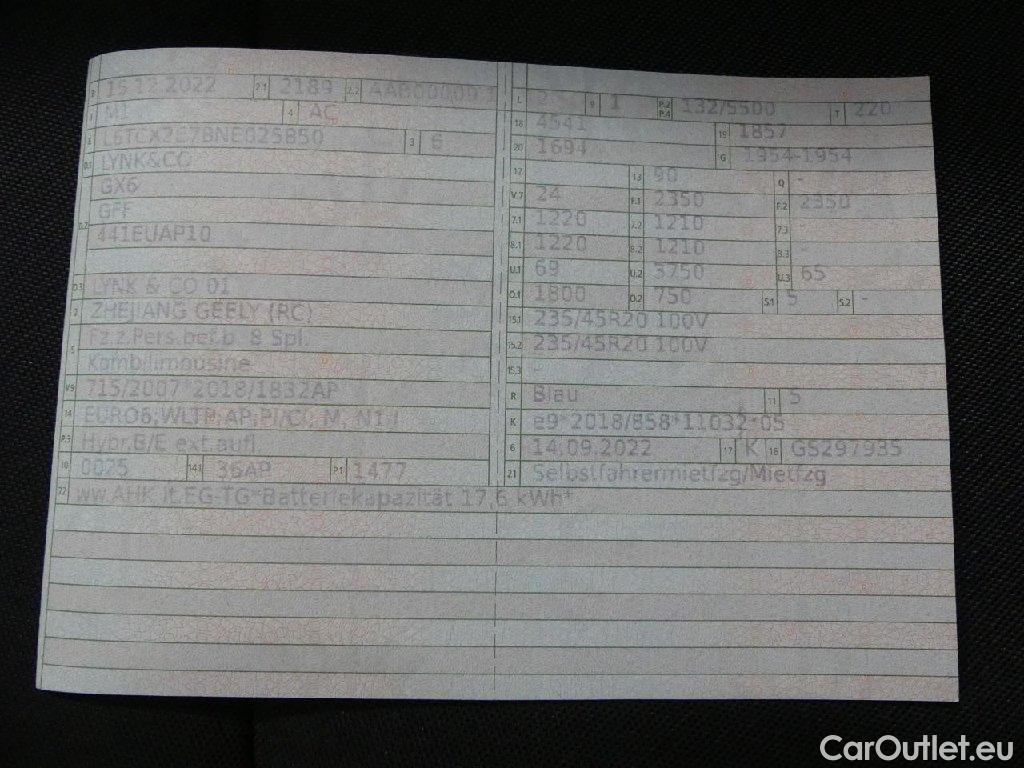 B 15.12.2022 2.1 2189 2.2
J M1 4 AC
E L6TCX2E7BNE025850 3 6
D.1 LYNK&CO
GX6
D.2 GFF
441EUAP10
D.3 LYNK & CO 01
2 ZHEJIANG GEELY (RC)
5 Fz.z.Pers.bef.b. 8 Spl.
Kombilimousine
V.9 715/2007*2018/1832AP
14 EURO6;WLTP;AP;PI/CI; M, N1 I
P.3 Hybr.B/E ext.aufl
10 0025 14.1 36AP P.1 1477
22 ww.AHK lt.EG-TG*Batteriekapazität 17,6 kWh*
L 2 9 1 P.2 P.4 132/5500 T 220
18 4541 19 1857
20 1694 G 1954-1954
12 - 13 90 Q -
V.7 24 F.1 2350 F.2 2350
7.1 1220 7.2 1210 7.3 -
8.1 1220 8.2 1210 8.3 -
U.1 69 U.2 3750 U.3 65
O.1 1800 O.2 750 S.1 5 S.2 -
15.1 235/45R20 100V
15.2 235/45R20 100V
15.3 -
R Blau 11 5
K e9*2018/858*11032*05
6 14.09.2022 17 K 16 GS297935
21 Selbstfahrermietfzg/Mietfzg
CarOutlet.eu